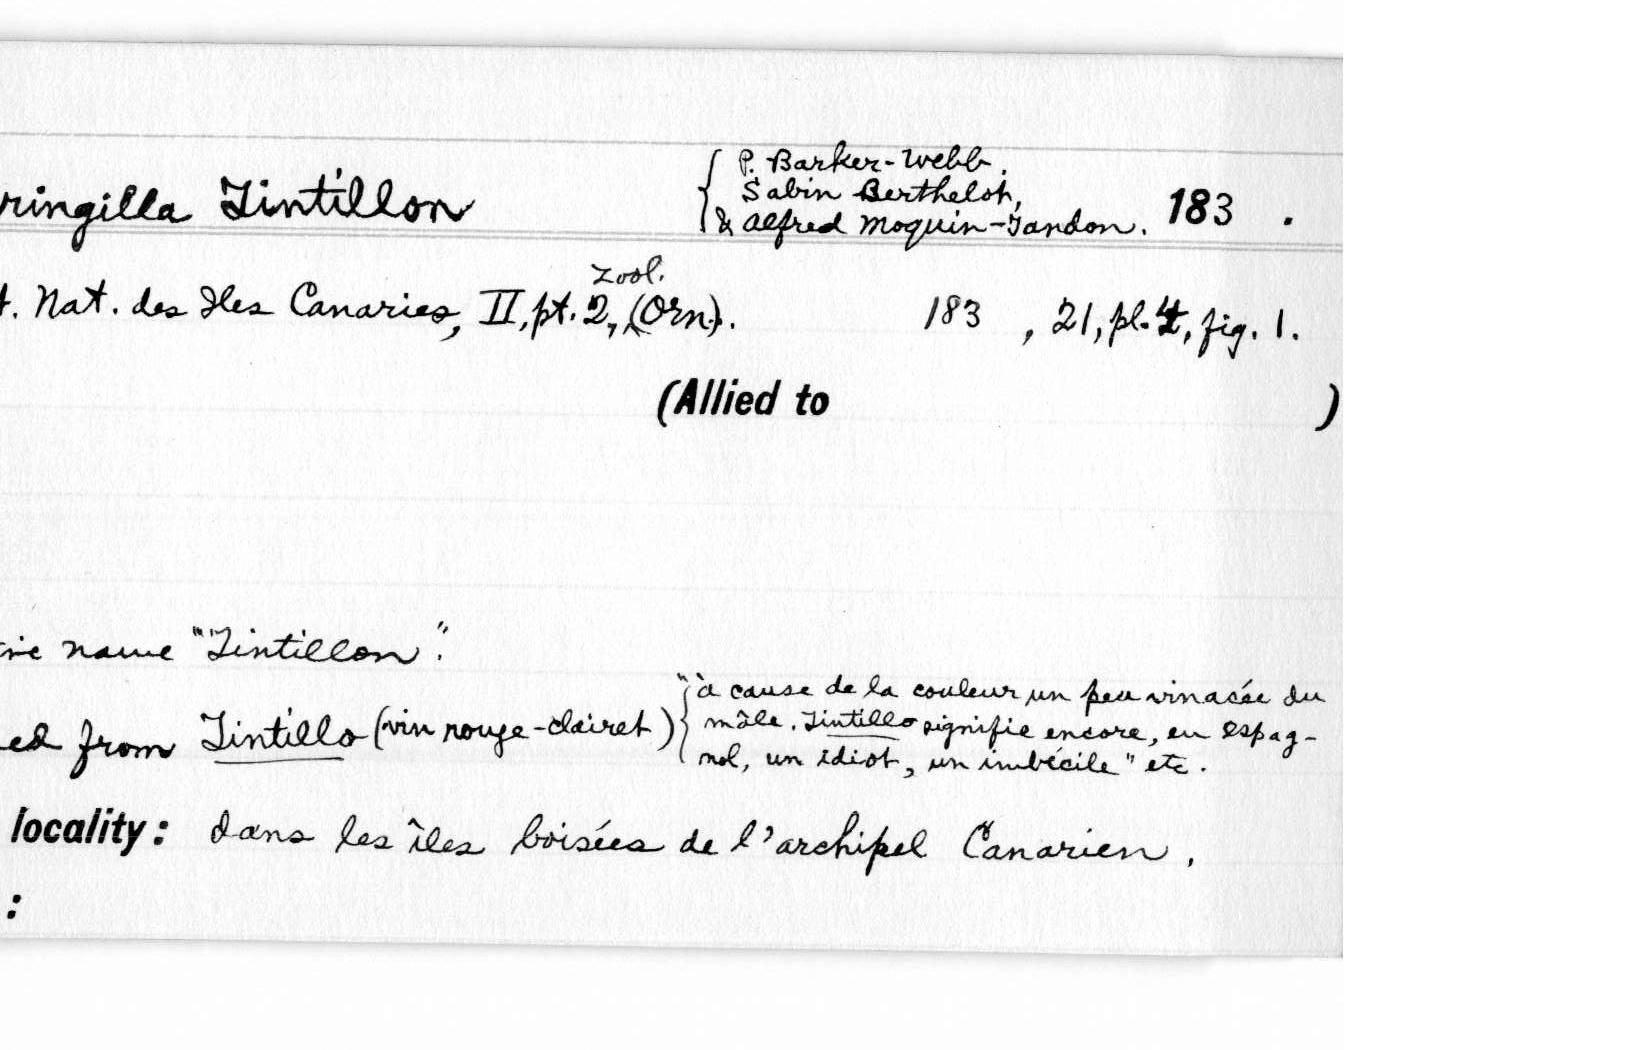 ringilla Tintillon
{ P. Barker-Webb,
Sabin Berthelot,
& Alfred Moquin-Tandon. 183 .
t. Nat. des Iles Canaries, II, pt. 2, Zool. (Orn.). 183 , 21, pl. 4, fig. 1.
(Allied to )
name "Tintillon".
ed from Tintillo (vin rouge-clairet) { "à cause de la couleur un peu vinacée du
mâle. Tintillo signifie encore, en espag-
nol, un idiot, un imbécile" etc.
locality: dans les îles boisées de l'archipel Canarien.
: